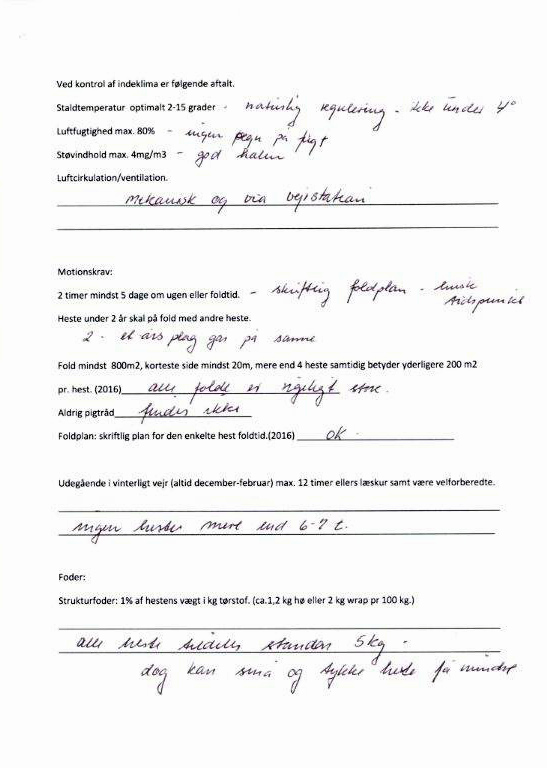 Ved kontrol af indeklima er følgende aftalt.
Staldtemperatur optimalt 2-15 grader - naturlig regulering - ikke under 4°
Luftfugtighed max. 80% - ingen tegn på fugt
Støvindhold max. 4mg/m3 - god halm
Luftcirkulation/ventilation.
Mekanisk og via vejrstation
Motionskrav:
2 timer mindst 5 dage om ugen eller foldtid. - skriftlig foldplan - husk tidspunkt
Heste under 2 år skal på fold med andre heste.
2 - et års plag går på samme
Fold mindst 800m2, korteste side mindst 20m, mere end 4 heste samtidig betyder yderligere 200 m2
pr. hest. (2016) alle folde er rigeligt store.
Aldrig pigtråd findes ikke
Foldplan: skriftlig plan for den enkelte hest foldtid.(2016) OK
Udegående i vinterligt vejr (altid december-februar) max. 12 timer ellers læskur samt være velforberedte.
ingen heste mere end 6-7 t.
Foder:
Strukturfoder: 1% af hestens vægt i kg tørstof. (ca.1,2 kg hø eller 2 kg wrap pr 100 kg.)
alle heste tildeles 5kg -
dog kan små og tykke heste få mindre